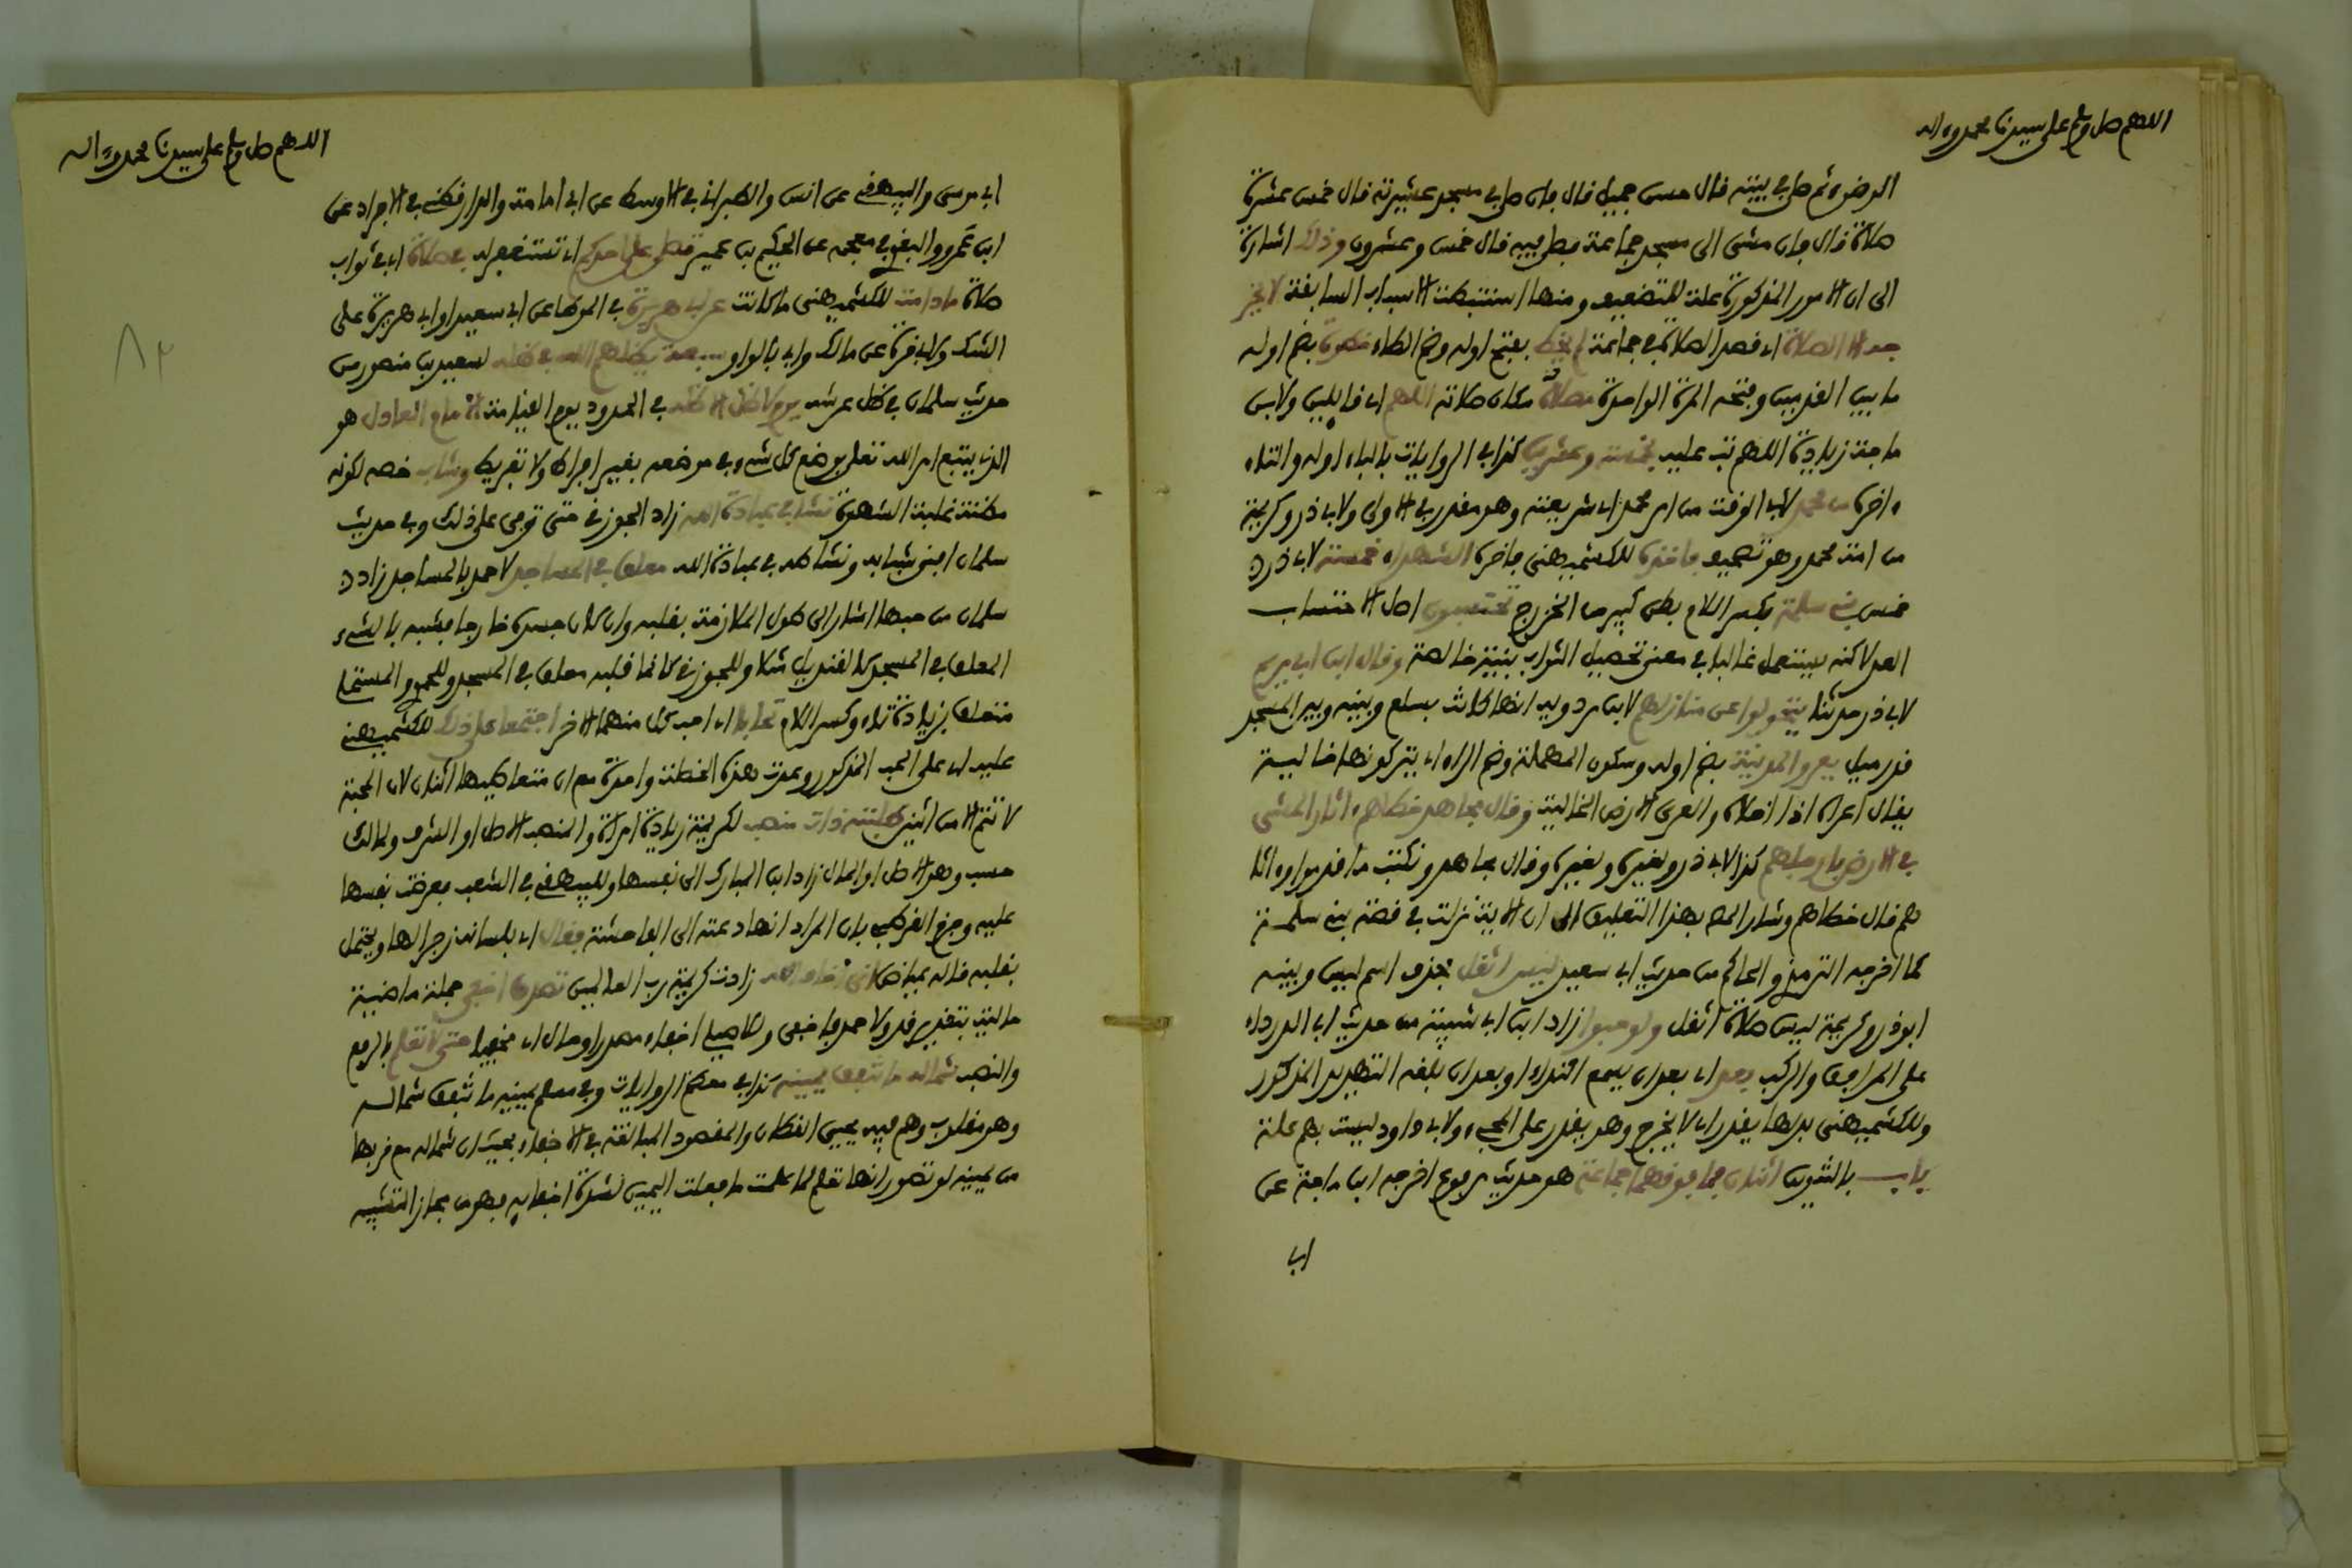 اللهم صل وسلم على سيدنا محمد وءاله
الوضوء ثم صلى في بيته قال حسن جميل قال فإن صلى في مسجد عشيرته قال خمس عشرة
صلاة قال فإن مشى الى مسجد جماعة فصلى فيه قال خمس وعشرون وذلك اشارة
الى ان الامور المذكورة علة للتضعيف ومنها استنبطت الاسباب السابقة لا يخر
جه الا الصلاة اي قصد الصلاة في جماعة لم يخط بفتح اوله وضم الطاء خطوة بضم اوله
ما بين القدمين وبفتحه المرة الواحدة مصلاه مكان صلاته اللهم اي قايلين ولابن
ماجة زيادة اللهم تب عليه بخمسة وعشرين كذا في الروايات بالباء اوله والتاء
ءاخره من محمد لابي الوقت من امر محمد اي شريعته وهو مقدر في الاولى ولابي ذر وكريمة
من امة محمد وهو تصحيف فاخذه للكشميهني فاخره الشهداء خمسة لابي ذر
خمس بني سلمة بكسر اللام بطن كبير من الخزرج تحتسبون اصل الاحتساب
العد لاكنه يستعمل غالبا في معنى تحصيل الثواب بنية خالصة وقال ابن ابي مريم
لابي ذر حدثنا يتحولوا عن منازلهم لابن مردويه انها كانت بسلع وبينه وبين المسجد
قدر ميل يعروا المدينة بضم اوله وسكون المهملة وضم الراء اي يتركونها خالية
يقال اعراه اذا اخلاه والعرى الارض الخالية وقال مجاهد خطاهم ءاثار المشي
في الارض بارجلهم كذا لابي ذر ولغيره وقال مجاهد ونكتب ما قدموا وءاثا
رهم قال خطاهم وشار المص بهذا التعليق الى ان الاية نزلت في قصة بني سلمة
كما اخرجه الترمذي والحاكم من حديث ابي سعيد ليس اثقل بحذف اسم ليس وبينه
ابو ذر وكريمة ليس صلاة اثقل ولو حبوا زاد ابن ابي شيبة من حديث ابي الدرداء
على المرافق والركب بعد اي بعد ان يسمع النداء او بعد ان بلغه التهديد المذكور
وللكشميهني بدلها يقدر اي لا يخرج وهو يقدر على المجيء ولابي داود ليست بهم علة
باب بالتنوين اثنان فما فوقهما جماعة هو حديث مرفوع اخرجه ابن ماجة عن
ابي
اللهم صل وسلم على سيدنا محمد وءاله
ابي موسى والبيهقي عن انس والطبراني في الاوسط عن ابي امامة والدارقطني في الافراد عن
ابن عمرو والبغوي في معجمه عن الحكم بن عمير تصلي على احدكم اي تستغفر له في صلاة اي في ثواب
صلاة ما دامت للكشميهني ما كانت عن ابي هريرة في الموطا عن ابي سعيد او ابي هريرة على
الشك ولابي قرة عن مالك وابي بالواو سبعة يظلهم الله في ظله لسعيد بن منصور من
حديث سلمان في ظل عرشه يوم لا ظل الا ظله في الحدود يوم القيامة الامام العادل هو
الذي يتبع امر الله تعلى بوضع كل شيء في موضعه بغير افراط ولا تفريط وشاب خصه لكونه
مظنة غلبة الشهوة نشا في عبادة الله زاد الجوزقي حتى توفي على ذلك وفي حديث
سلمان افنى شبابه ونشاطه في عبادة الله معلق في المساجد لاحمد بالمساجد زاد د
سلمان من حبها اشار الى طول الملازمة بقلبه وان كان جسده خارجا فشبه بالشيء
المعلق في المسجد كالقنديل مثلا وللجوزقي كانما قلبه معلق في المسجد وللحموي والمستملي
متعلق بزيادة تاء وكسر اللام تحابا اي احب كل منهما الاخر اجتمعا على ذلك للكشميهني
عليه اي على الحب المذكور وعدت هذه الخصلة واحدة مع ان متعاطيها اثنان لان المحبة
لا تتم الا من اثنين طلبته ذات منصب لكريمة زيادة امراة والمنصب الاصل او الشرف ولمالك
حسب وهو الاصل او المال زاد ابن المبارك الى نفسها وللبيهقي في الشعب فعرضت نفسها
عليه وجزم القرطبي بان المراد انها دعته الى الفاحشة فقال اي بلسانه زجرا لها ويحتمل
بقلبه قاله عياض اني اخاف الله زادت كريمة رب العالمين تصدق اخفى جملة ماضية
حالية بتقدير قد ولاحمد فاخفى وللاصيلي اخفاء مصدرا وحال اي مخفيا حتى لا تعلم بالرفع
والنصب شماله ما تنفق يمينه كذا في معظم الروايات وفي مسلم يمينه ما تنفق شماله
وهو مقلوب وهم فيه يحيى القطان والمقصود المبالغة في الاخفاء بحيث ان شماله مع قربها
من يمينه لو تصور انها تعلم لما علمت ما فعلت اليمين لشدة اخفايه فهو من مجاز التشبيه
٨٣